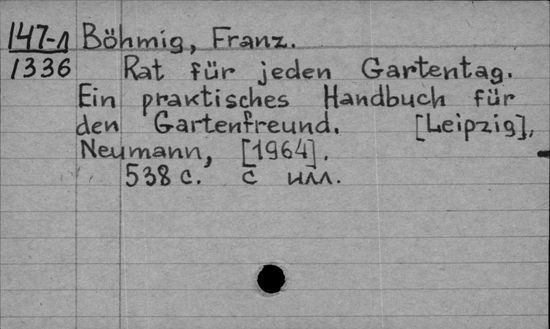 147-л Böhmig, Franz.
1336 Rat für jeden Gartentag.
Ein praktisches Handbuch für
den Gartenfreund. [Leipzig],
Neumann, [1964].
538 с. с илл.